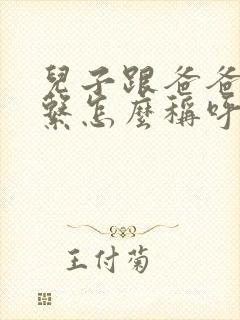 兒子跟爸爸
繫怎麼稱呼
王付菊